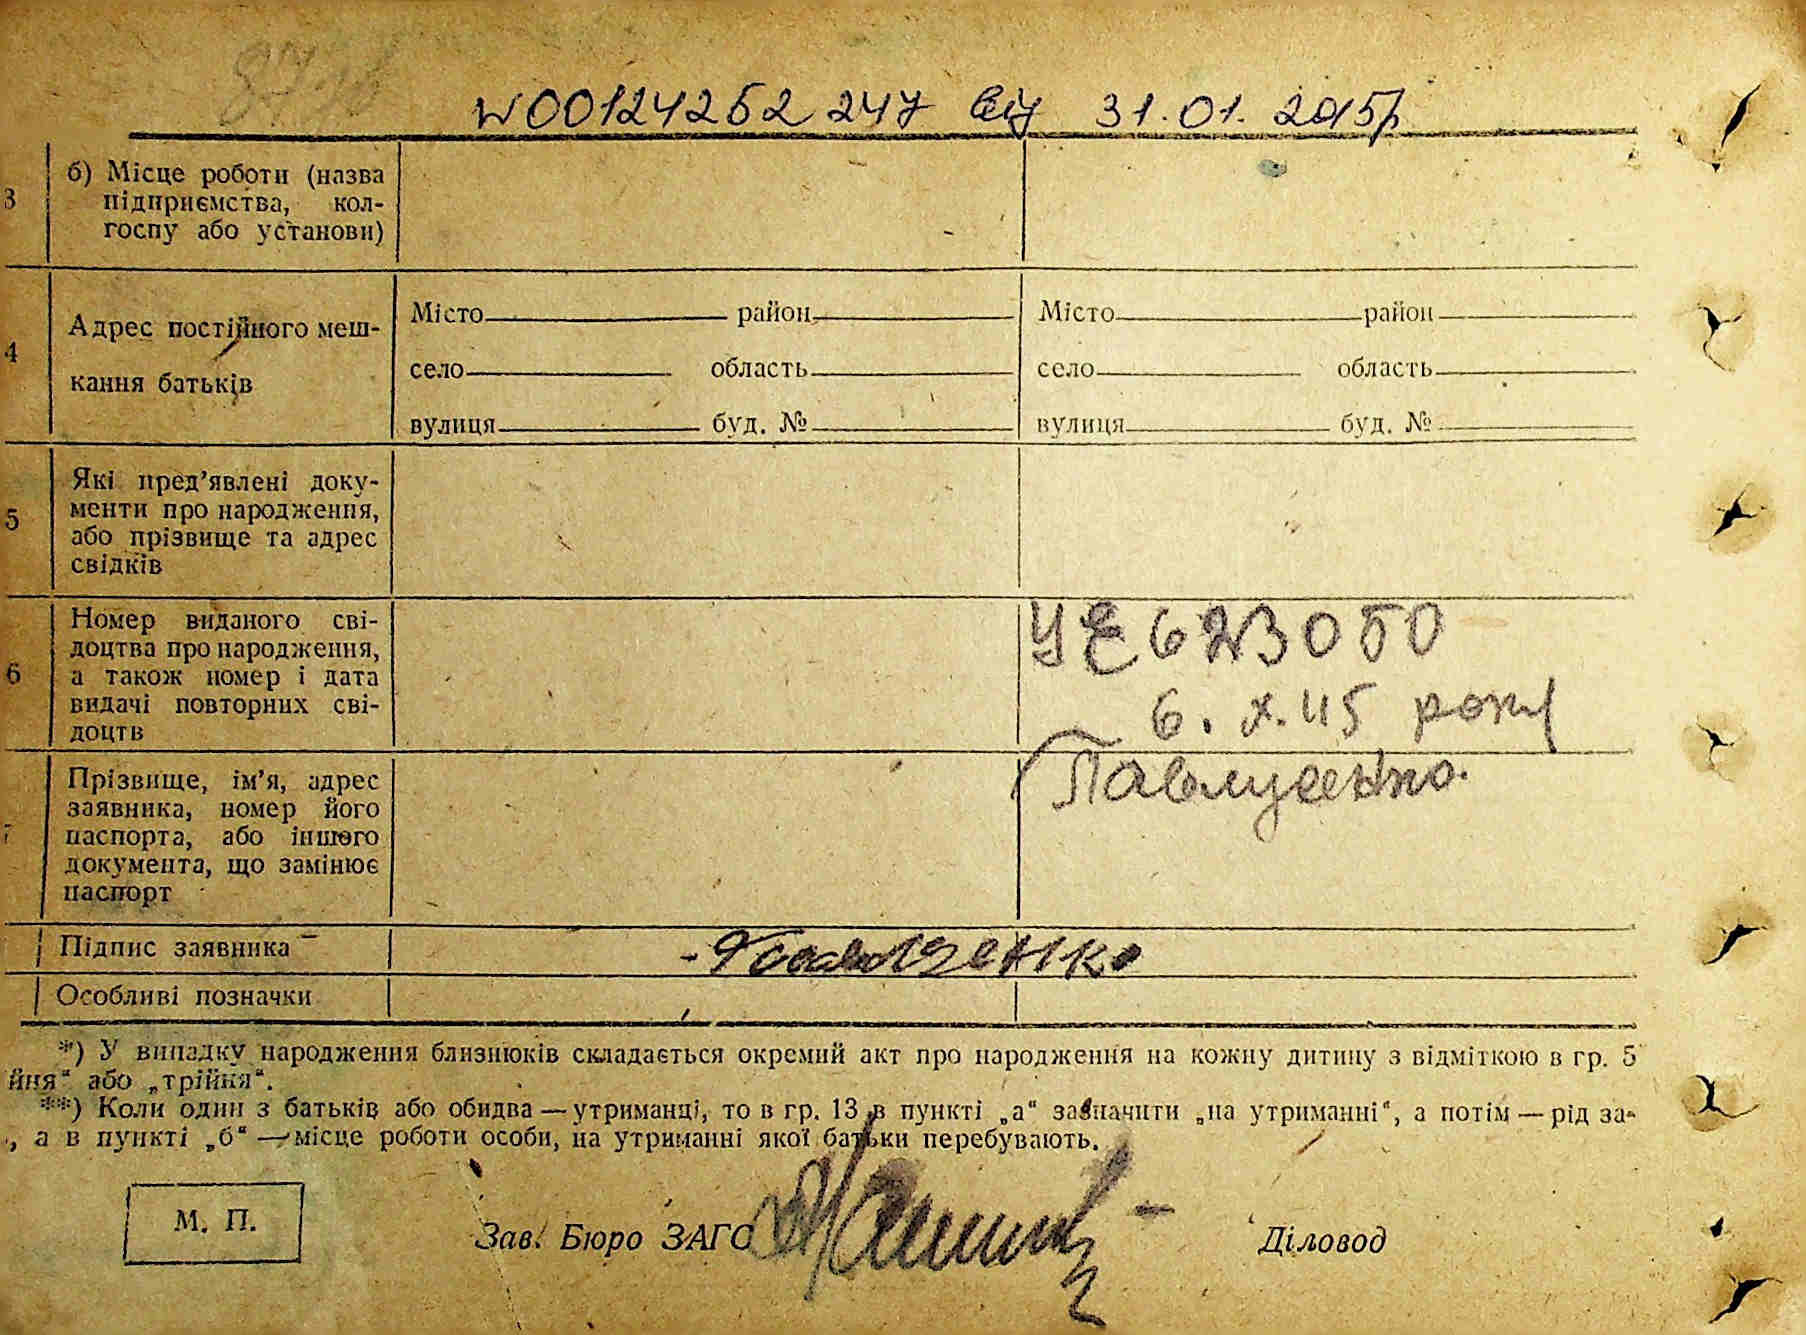 №00124252247 від 31.01.2015р
3
б) Місце роботи (назва
підприємства, кол-
госпу або установи)
4
Адрес постійного меш-
кання батьків
Місто район Місто район
село область село область
вулиця буд. № вулиця буд. №
5
Які пред'явлені доку-
менти про народження,
або прізвище та адрес
свідків
6
Номер виданого сві-
доцтва про народження,
а також номер і дата
видачі повторних сві-
доцтв
УЕ 623050
6. X. 45 року
Прізвище, ім'я, адрес
заявника, номер його
паспорта, або іншого
документа, що замінює
паспорт
Підпис заявника
Особливі позначки
*) У випадку народження близнюків складається окремий акт про народження на кожну дитину з відміткою в гр. 5
йня“ або „трійня“.
**) Коли один з батьків або обидва — утриманці, то в гр. 13 в пункті „а“ зазначити „на утриманні“, а потім — рід за-
, а в пункті „б“ — місце роботи особи, на утриманні якої батьки перебувають.
М. П.
Зав. Бюро ЗАГС Діловод